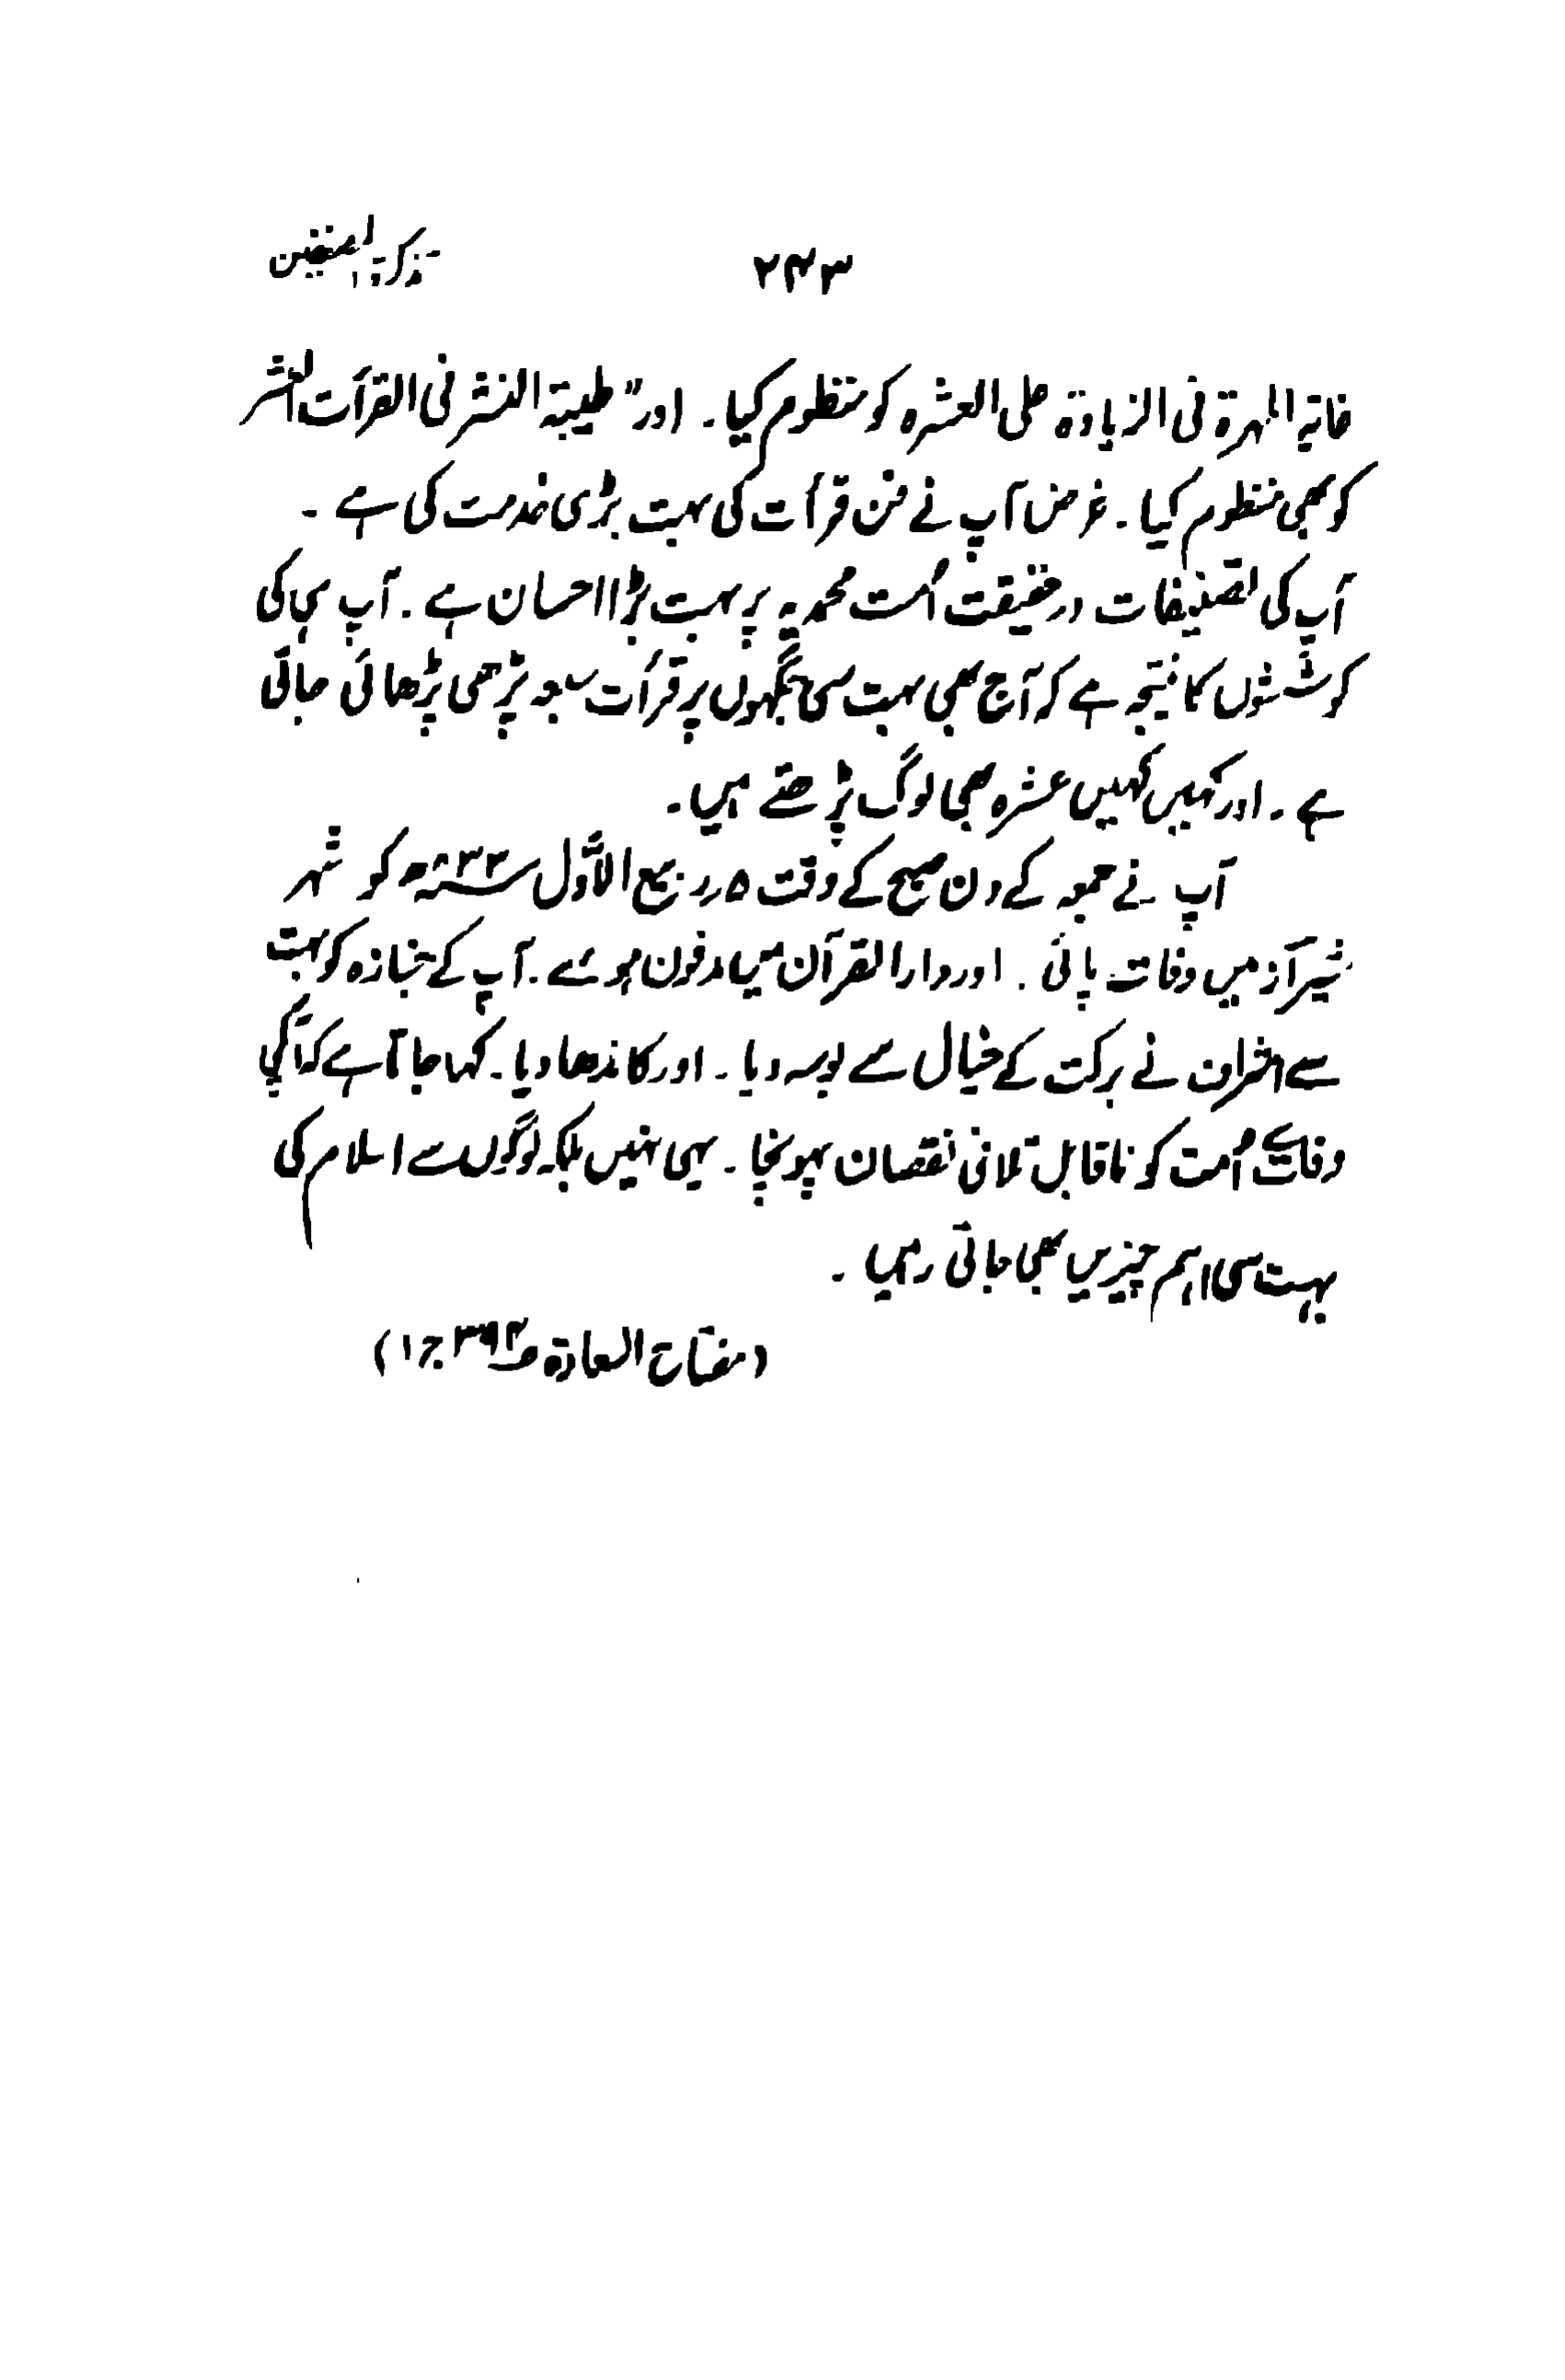 تذکرۃ المصنفین ۲۴۳
غایۃ المہرۃ فی الزیادۃ علی العشرہ کو منظوم کیا۔ اور "طیبۃ النشر فی القرآت العشر
کو بھی منظوم کیا۔ غرض آپ نے فن قرآت کی بہت بڑی خدمت کی ہے۔
آپ کی تصنیفات درحقیقت اُمت محمدیہ پر بہت بڑا احسان ہے۔ آپ ہی کی
کوششوں کا نتیجہ ہے کہ آج بھی بہت سی جگہوں پر قرآت سبعہ پڑھی پڑھائی جاتی
ہے۔ اور کہیں کہیں عشرہ بھی لوگ پڑھتے ہیں۔
آپ نے جمعہ کے دن صبح کے وقت ۵ ربیع الاوّل ۸۳۳ھ کو شہر
شیراز میں وفات پائی۔ اور دارالقرآن میں مدفون ہوئے۔ آپ کے جنازہ کو بہت
سے اشراف نے برکت کے خیال سے بوسہ دیا۔ اور کاندھا دیا۔ کہا جاتا ہے کہ آپکی
وفات سے اُمت کو ناقابل تلافی نقصان پہونچا۔ یہی نہیں بلکہ لوگوں سے اسلام کی
بہت سی اہم چیزیں بھی جاتی رہیں۔
(مفتاح السعادۃ ص۳۹۴ ج۱)